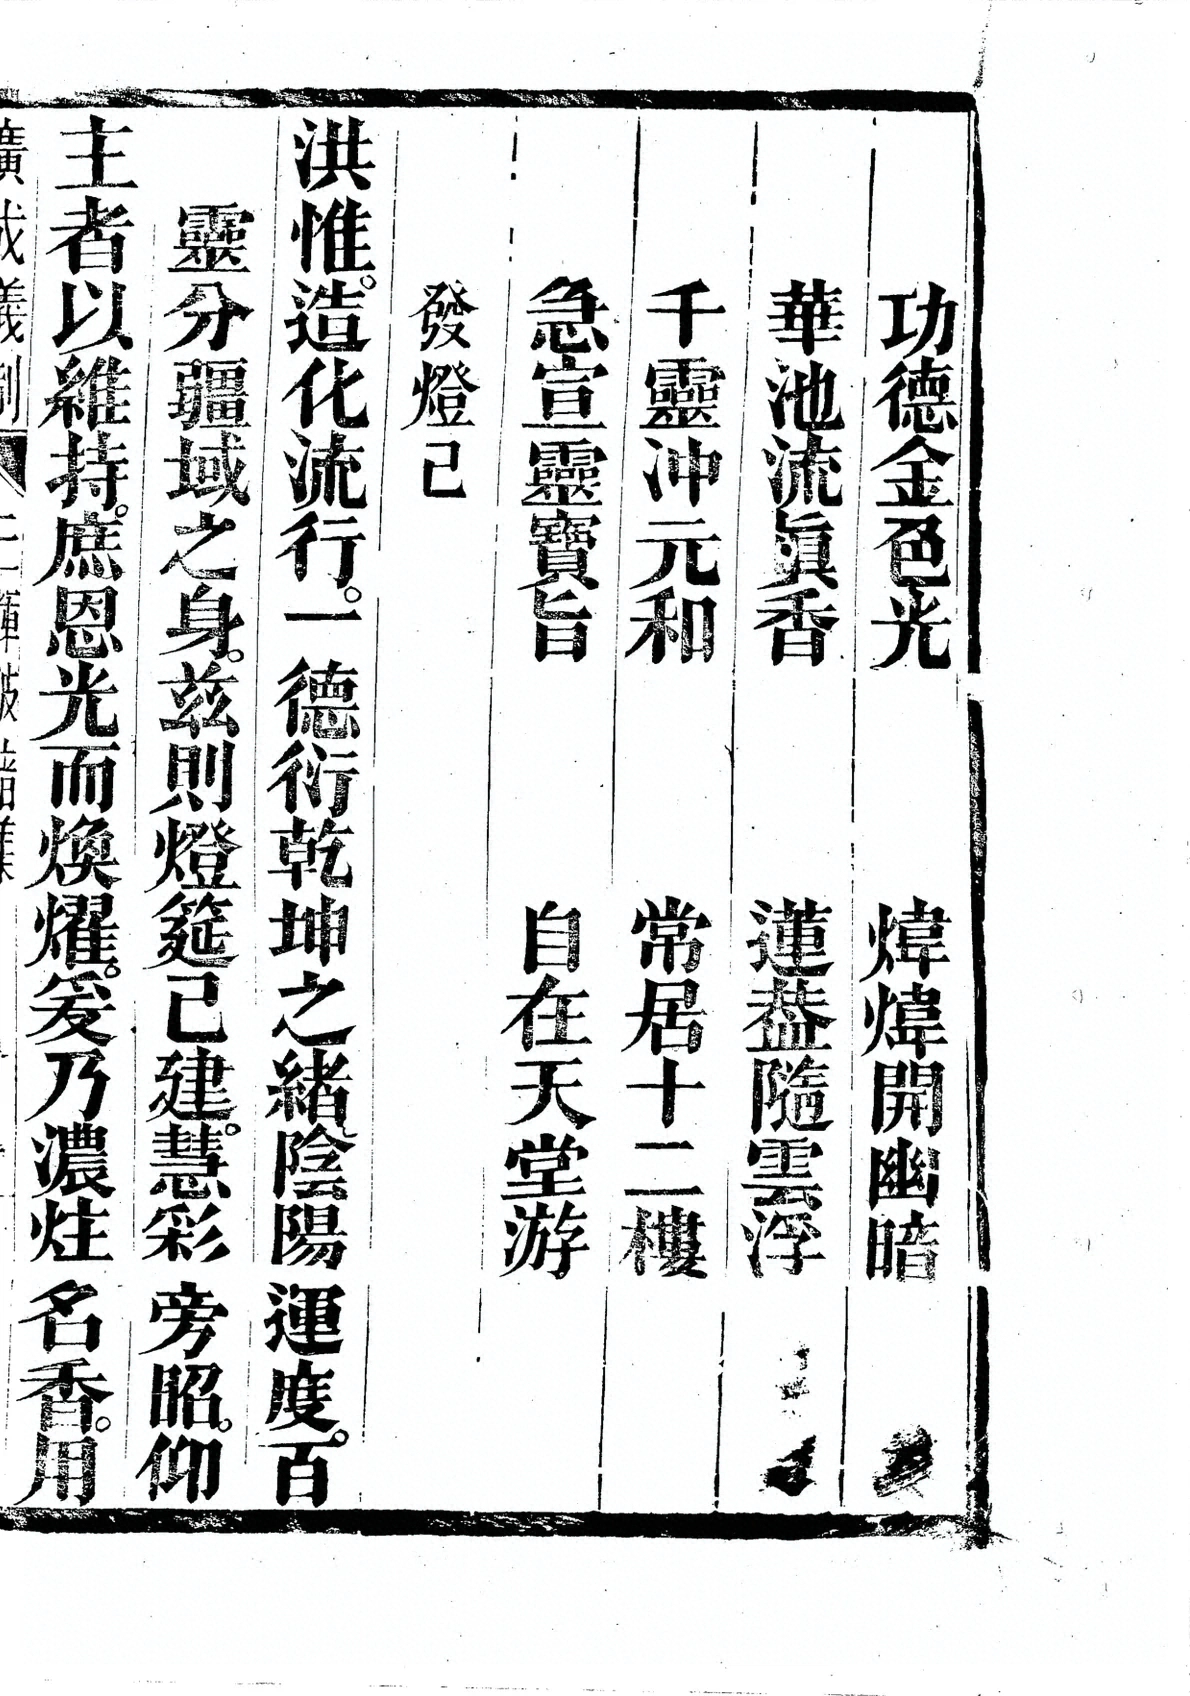 功德金色光　煒煒開幽暗
華池流眞香　蓮蓋隨雲浮
千靈冲元和　常居十二樓
急宣靈寶旨　自在天堂游
發燈己
洪惟。造化流行。一德衍乾坤之緒。陰陽運度。百
靈分疆域之身。茲則燈筵已建。慧彩旁昭。仰
主者以維持。庶恩光而煥耀。爰乃濃炷名香。用
廣成義制